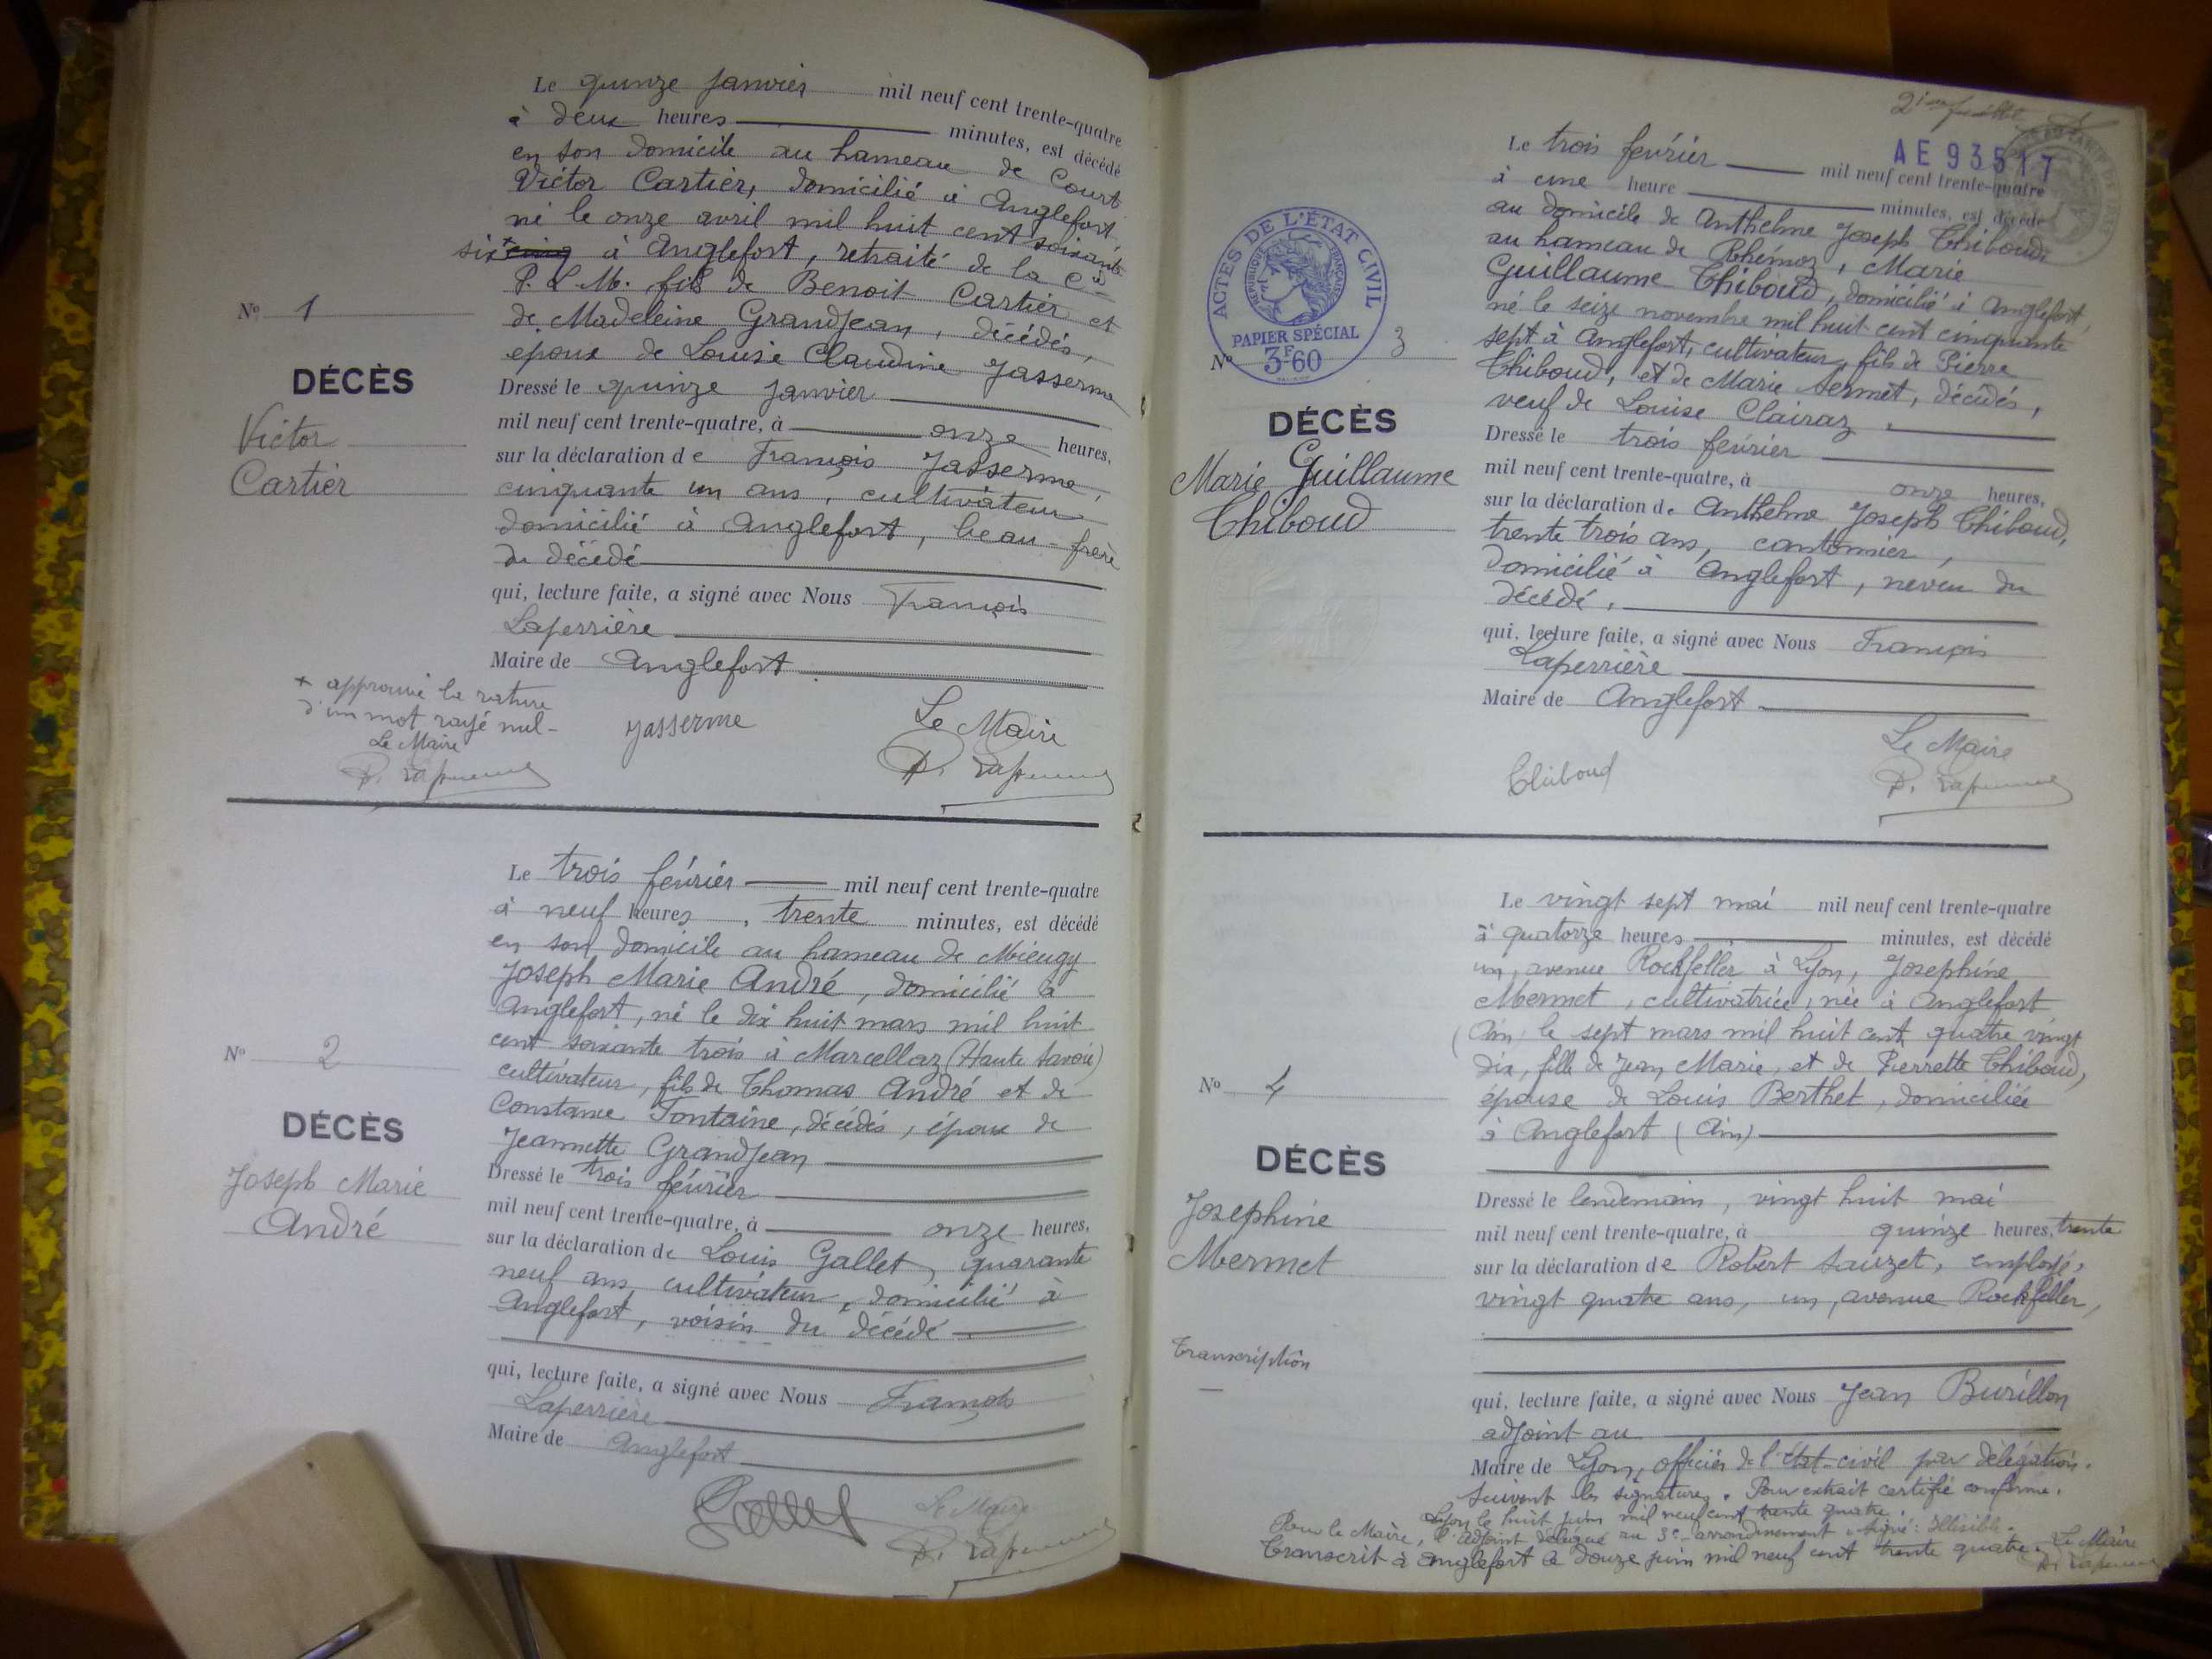 Le quinze janvier mil neuf cent trente-quatre
à deux heures minutes, est décédé
en son domicile au hameau de Court
Victor Cartier, domicilié à Anglefort,
né le onze avril mil huit cent soixante
six + cinq à Anglefort, retraité de la Cie
P. L. M. fils de Benoit Cartier et
de Madeleine Grandjean, décédés,
époux de Louise Claudine Jasserme
Nº 1
DÉCÈS
Victor
Cartier
Dressé le quinze janvier
mil neuf cent trente-quatre, à onze heures,
sur la déclaration de François Jasserme,
cinquante un ans, cultivateur
domicilié à Anglefort, beau-frère
du décédé
qui, lecture faite, a signé avec Nous François
Laperrière
Maire de Anglefort.
+ approuvé la rature
d'un mot rayé nul-
Le Maire
Jasserme
Le Maire
Le trois février mil neuf cent trente-quatre
à neuf heures, trente minutes, est décédé
en son domicile au hameau de Mieugy
Joseph Marie André, domicilié à
Anglefort, né le dix huit mars mil huit
cent soixante trois à Marcellaz (Haute Savoie)
cultivateur, fils de Thomas André et de
Constance Fontaine, décédés, époux de
Jeannette Grandjean
Nº 2
DÉCÈS
Joseph Marie
André
Dressé le trois février
mil neuf cent trente-quatre, à onze heures,
sur la déclaration de Louis Gallet, quarante
neuf ans, cultivateur, domicilié à
Anglefort, voisin du décédé
qui, lecture faite, a signé avec Nous François
Laperrière
Maire de Anglefort
Le Maire
AE 93517
ACTES DE L'ÉTAT CIVIL
RÉPUBLIQUE FRANÇAISE
PAPIER SPÉCIAL
3F60
Le trois février mil neuf cent trente-quatre
à une heure minutes, est décédé
au domicile de Anthelme Joseph Thiboud
au hameau de Rhémoz, Marie
Guillaume Thiboud, domicilié à Anglefort,
né le seize novembre mil huit cent cinquante
sept à Anglefort, cultivateur, fils de Pierre
Thiboud, et de Marie Sermet, décédés,
veuf de Louise Clairaz.
Nº 3
DÉCÈS
Marie Guillaume
Thiboud
Dressé le trois février
mil neuf cent trente-quatre, à onze heures,
sur la déclaration de Anthelme Joseph Thiboud,
trente trois ans, cantonnier,
domicilié à Anglefort, neveu du
décédé,
qui, lecture faite, a signé avec Nous François
Laperrière
Maire de Anglefort
Thiboud
Le Maire
Le vingt sept mai mil neuf cent trente-quatre
à quatorze heures minutes, est décédé
un, avenue Rockfeller à Lyon, Josephine
Mermet, cultivatrice, née à Anglefort
(Ain) le sept mars mil huit cent quatre vingt
dix, fille de Jean Marie, et de Pierrette Thiboud,
épouse de Louis Berthet, domiciliée
à Anglefort (Ain)
Nº 4
DÉCÈS
Josephine
Mermet
Transcription
Dressé le lendemain, vingt huit mai
mil neuf cent trente-quatre, à quinze heures, trente
sur la déclaration de Robert Sauzet, employé,
vingt quatre ans, un, avenue Rockfeller,
qui, lecture faite, a signé avec Nous Jean Burillon
adjoint au
Maire de Lyon, officier de l'état-civil par délégation.
Suivent les signatures. Pour extrait certifié conforme.
Lyon le huit juin mil neuf cent trente quatre.
Pour le Maire, l'adjoint délégué au 3e arrondissement signé: illisible.
Transcrit à Anglefort le douze juin mil neuf cent trente quatre. Le Maire